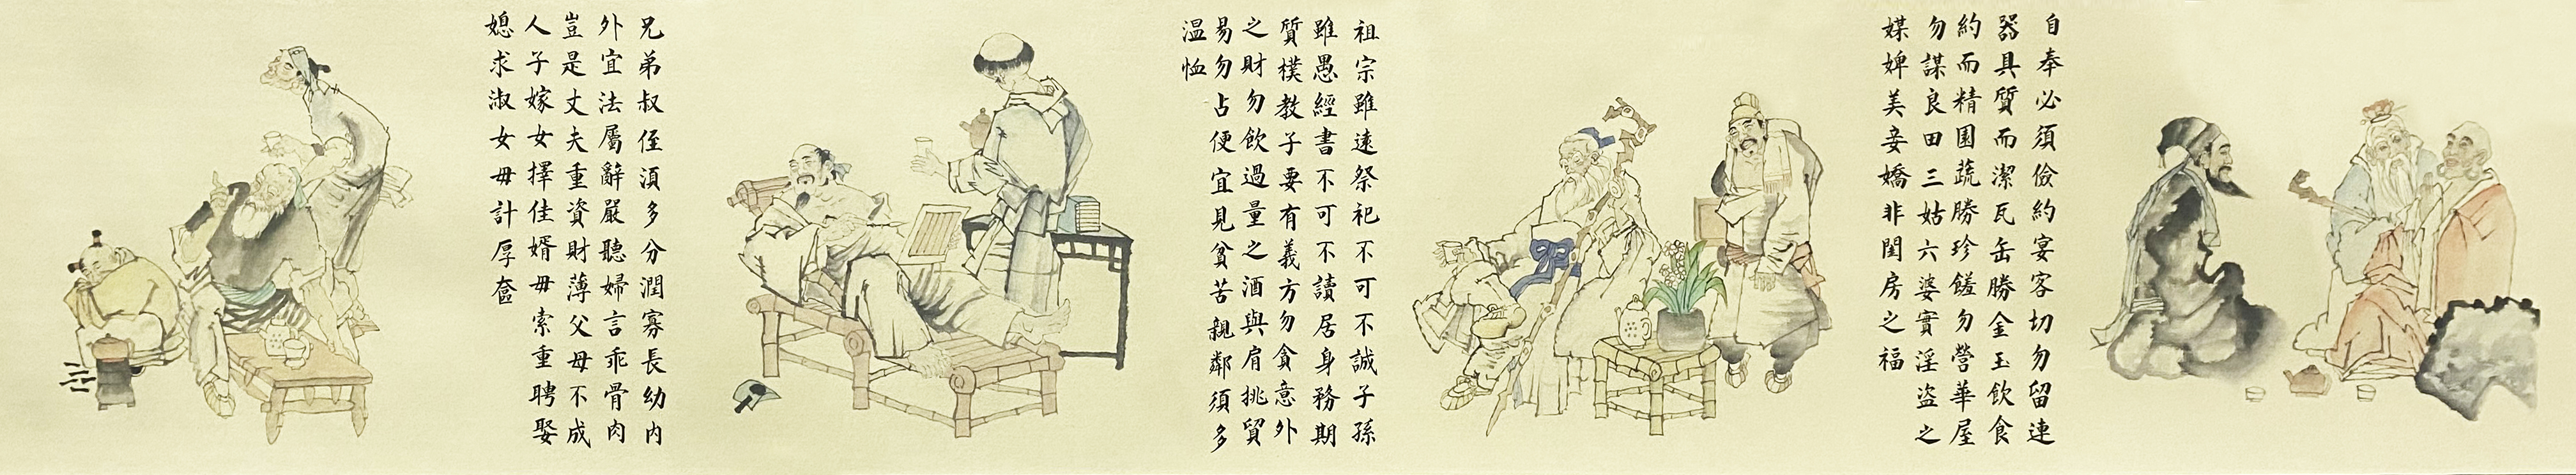 自奉必須儉約宴客切勿留連
器具質而潔瓦缶勝金玉飲食
約而精園蔬勝珍饈勿營華屋
勿謀良田三姑六婆實淫盜之
媒婢美妾嬌非閨房之福
祖宗雖遠祭祀不可不誠子孫
雖愚經書不可不讀居身務期
質樸教子要有義方勿貪意外
之財勿飲過量之酒與肩挑貿
易勿占便宜見貧苦親鄰須多
温恤
兄弟叔侄須多分潤寡長幼内
外宜法屬辭嚴聽婦言乖骨肉
豈是丈夫重資財薄父母不成
人子嫁女擇佳婿毋索重聘娶
媳求淑女毋計厚奩